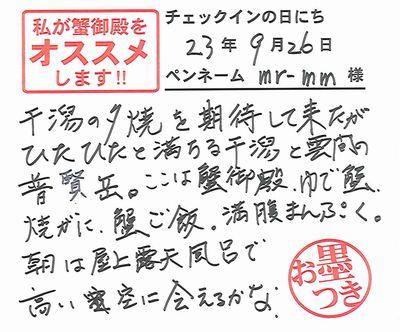 私が蟹御殿を
オススメ
します!!
チェックインの日にち
23年9月26日
ペンネーム mr-mm 様
干潟の夕焼を期待して来たが
ひたひたと満ちる干潟と雲間の
普賢岳。ここは蟹御殿、ゆで蟹、
焼がに、蟹ご飯。満腹まんぷく。
朝は屋上露天風呂で
高い 空に会えるかな。
お墨つき